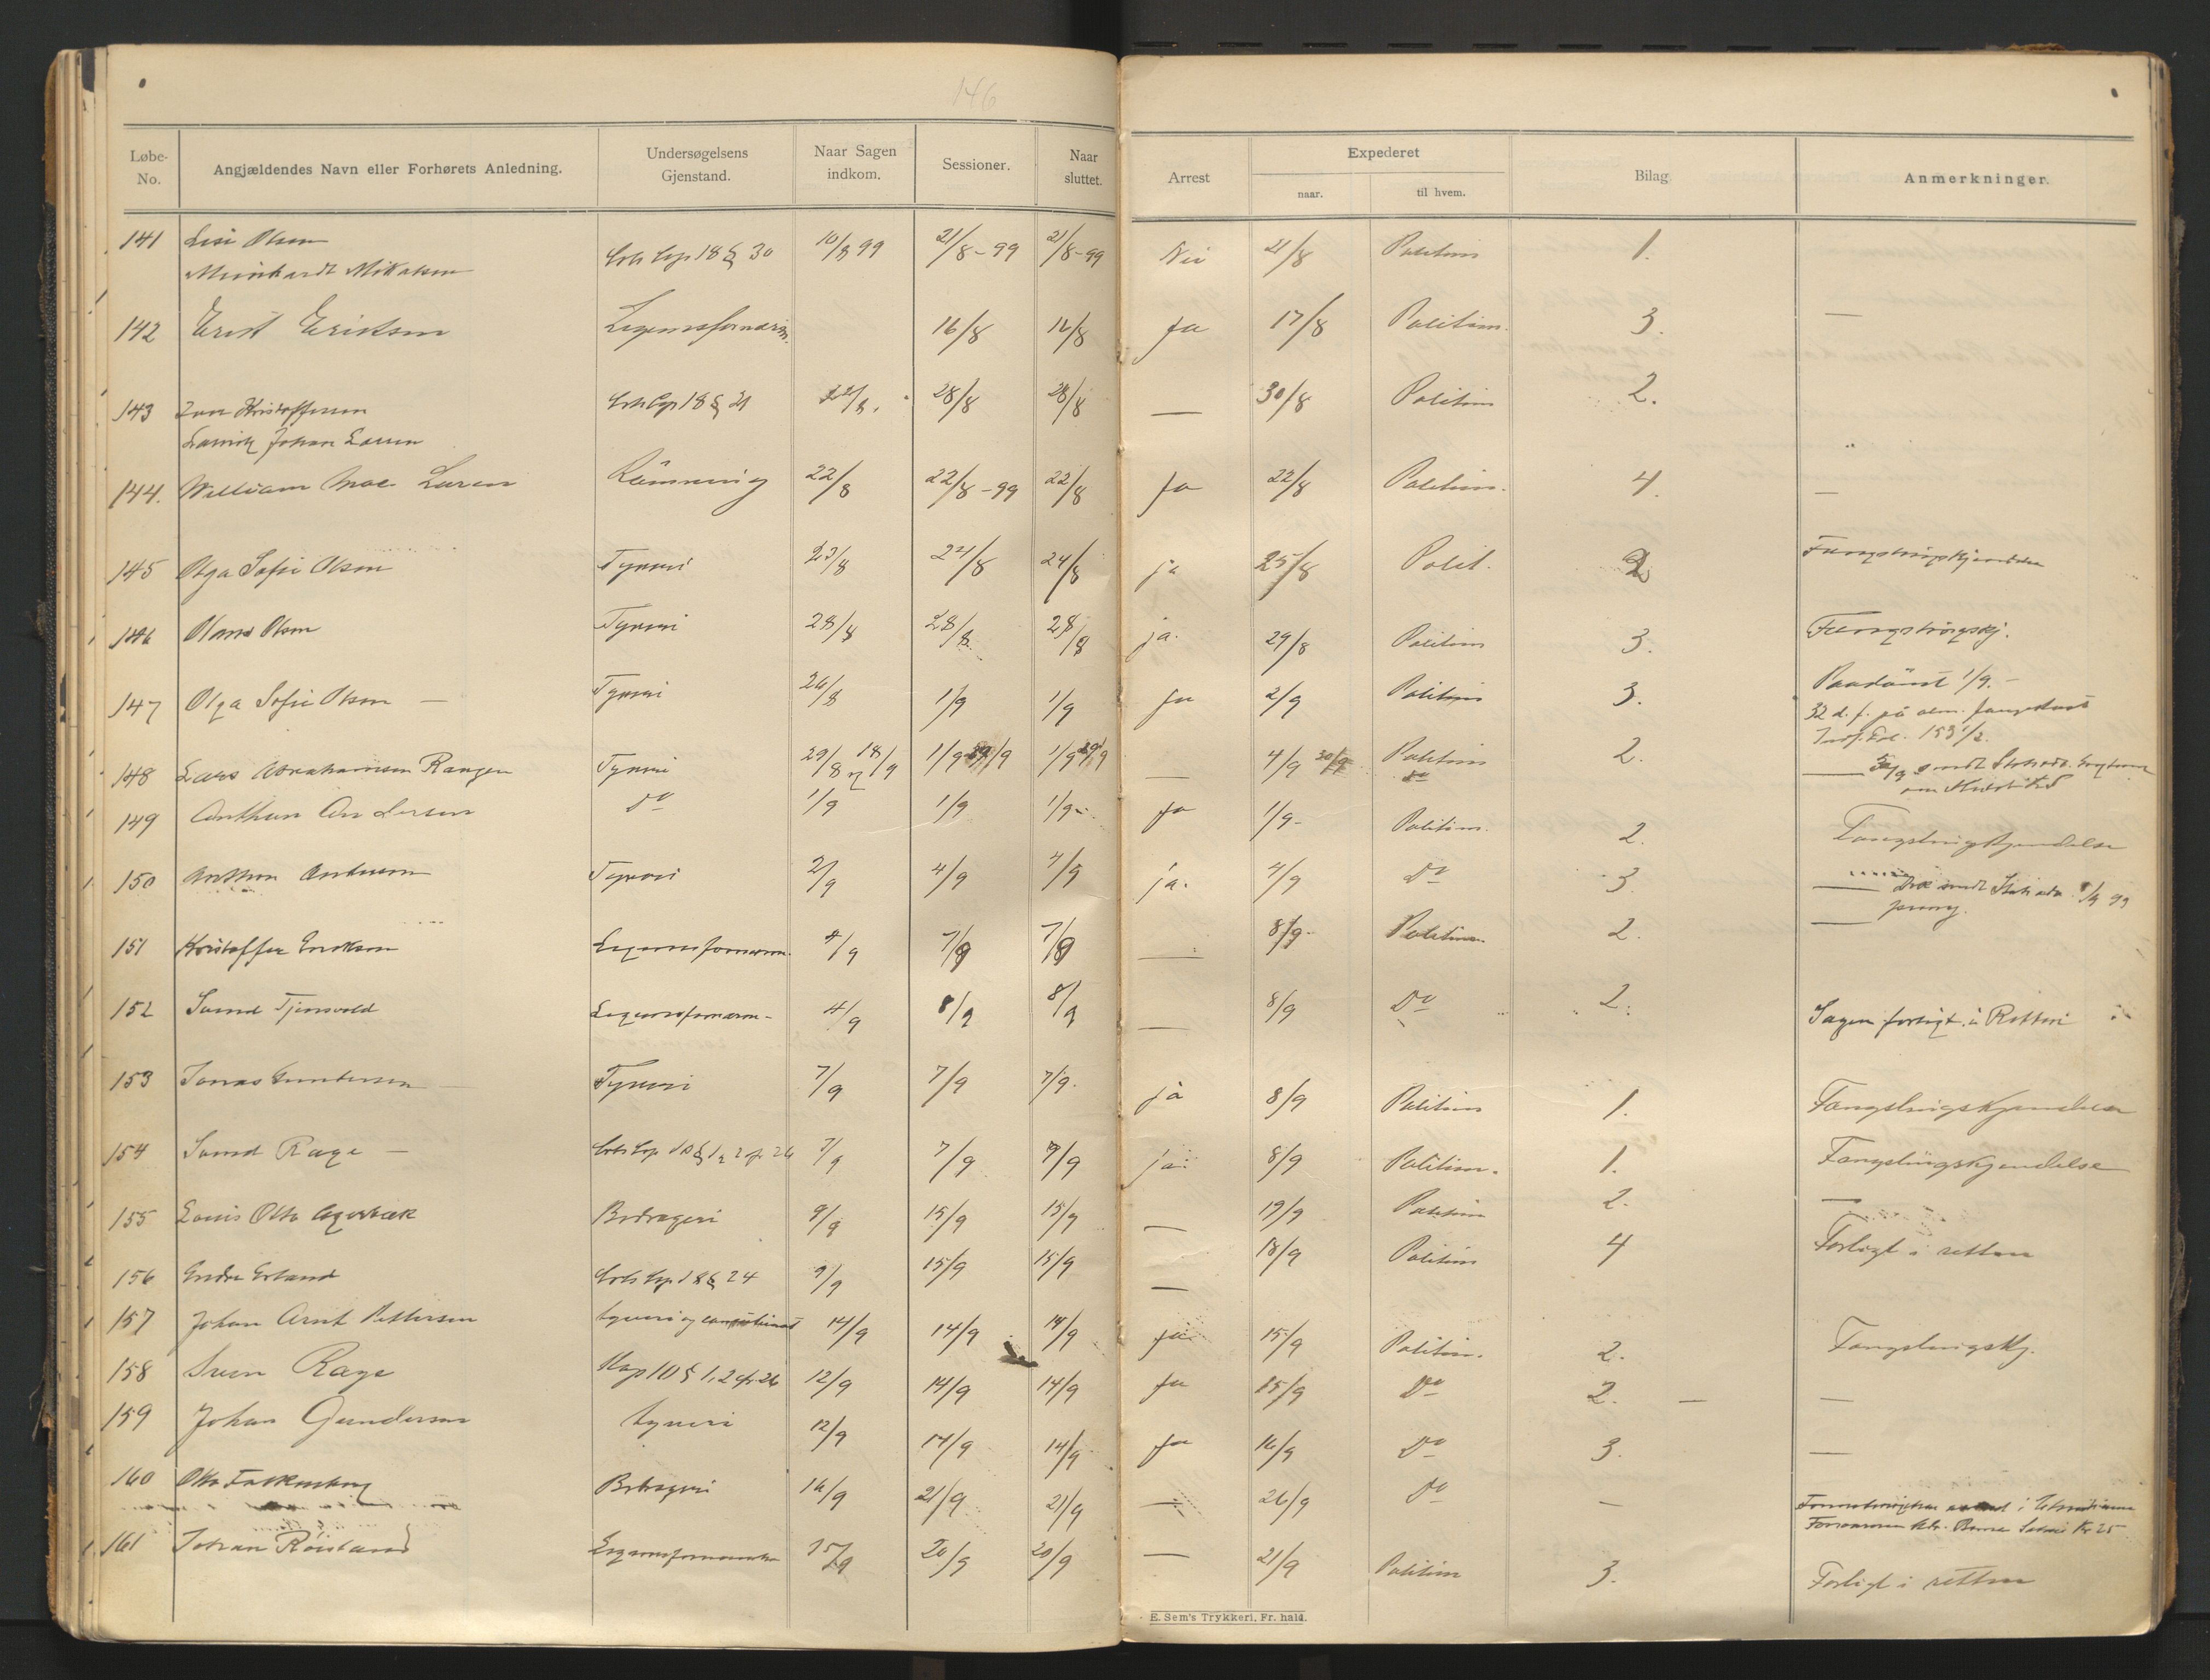 146
Løbe-No. Angjældendes Navn eller Forhørets Anledning. Undersøgelsens Gjenstand. Naar Sagen indkom. Sessioner. Naar sluttet. Arrest Expederet naar. til hvem. Bilag Anmerkninger.
141 Olsen 10/8 99 21/8-99 21/8-99 Nei 21/8 Politim 1.
Meinhardt Mikalsen Cr 18 § 30
142 Erik Eriksen Legemsfornærm. 16/8 16/8 Ja 17/8 Politim. 3. —
143 Kristoffersen 18 § 21 28/8 28/8 — 30/8 Politim 2.
Johan Larsen
144. William Mac Laren Rømning 22/8 22/8-99 22/8 Ja 22/8 Politim. 4. —
145 Olga Sofie Olsen Tyveri 23/8 24/8 24/8 ja 25/8 Polit. 2 Fængslingskjendelse
146 Olsen Tyveri 28/8 28/8 28/8 ja. 29/8 Politim 3. Fængslingskj.
147 Olga Sofie Olsen — Tyveri 26/8 1/9 1/9 Ja 2/9 Politim 3. Paadømt 1/9.-
32 d. f. på alm. fangekost
153
148 Lars Abrahamsen Rangen Tyveri 29/8 og 18/9 1/9 29/9 1/9 29/9 — 4/9 30/9 Politim Do 2. — 30/9
149 Anthun Andersen Do 1/9 1/9 1/9- Ja 1/9- Politim. 2. Fængslingskjendelse
150 Anthon Andersen Tyveri 2/9 4/9 4/9 ja. 4/9 Do 3 —
151 Kristoffer Eriksen Legemsfornærm. 4/9 7/9 7/9 — 8/9- Politim. 2. —
152 Svend Tjensvold Legemsfornærm- 4/9 8/9 8/9 — 8/9 Do 2. Sagen forligt i Retten
153 Jonas Gundersen — Tyveri 7/9 7/9 7/9. ja 8/9 Politim 1. Fængslingskjendelse
154 Svend Rage — 10 § 1, 2 cfr 26 7/9 7/9 7/9 ja. 8/9 Politim. 1. Fængslingskjendelse
155 Louis Otto Bedrageri 9/9 15/9 15/9 — 19/9 Politim 2. —
156 Endre Erland 18 § 24 9/9 15/9 15/9 — 18/9 Politim 4 Forligt i retten
157 Johan Arnt Pettersen tyveri og 14/9 14/9 14/9 ja 15/9 Politim. 2. Fængslingskj.
158 Sven Rage Kap 10 § 1, 2 cfr 26 12/9 14/9 14/9 Ja 15/9 Do 2. — —
159 Johan Gundersen tyveri 12/9 14/9 14/9 Ja 16/9 Do 3. —
160 Otto Falkenberg Bedrageri 16/9 21/9 21/9 — 26/9 Do —
Kr 25
161 Johan Røisland Legemsfornærmelse 15/9 20/9 20/9 — 21/9 Politim 3. Forligt i retten
E. Sem's Trykkeri, Fr. hald.